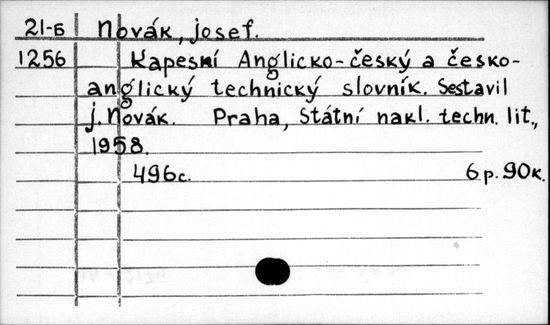 21-Б Novák, josef.
1256 Kapesní Anglicko-český a česko-
anglický technický slovník. Sestavil
j. Novák. Praha, Státní nakl. techn. lit.,
1958.
496с. 6р. 90к.